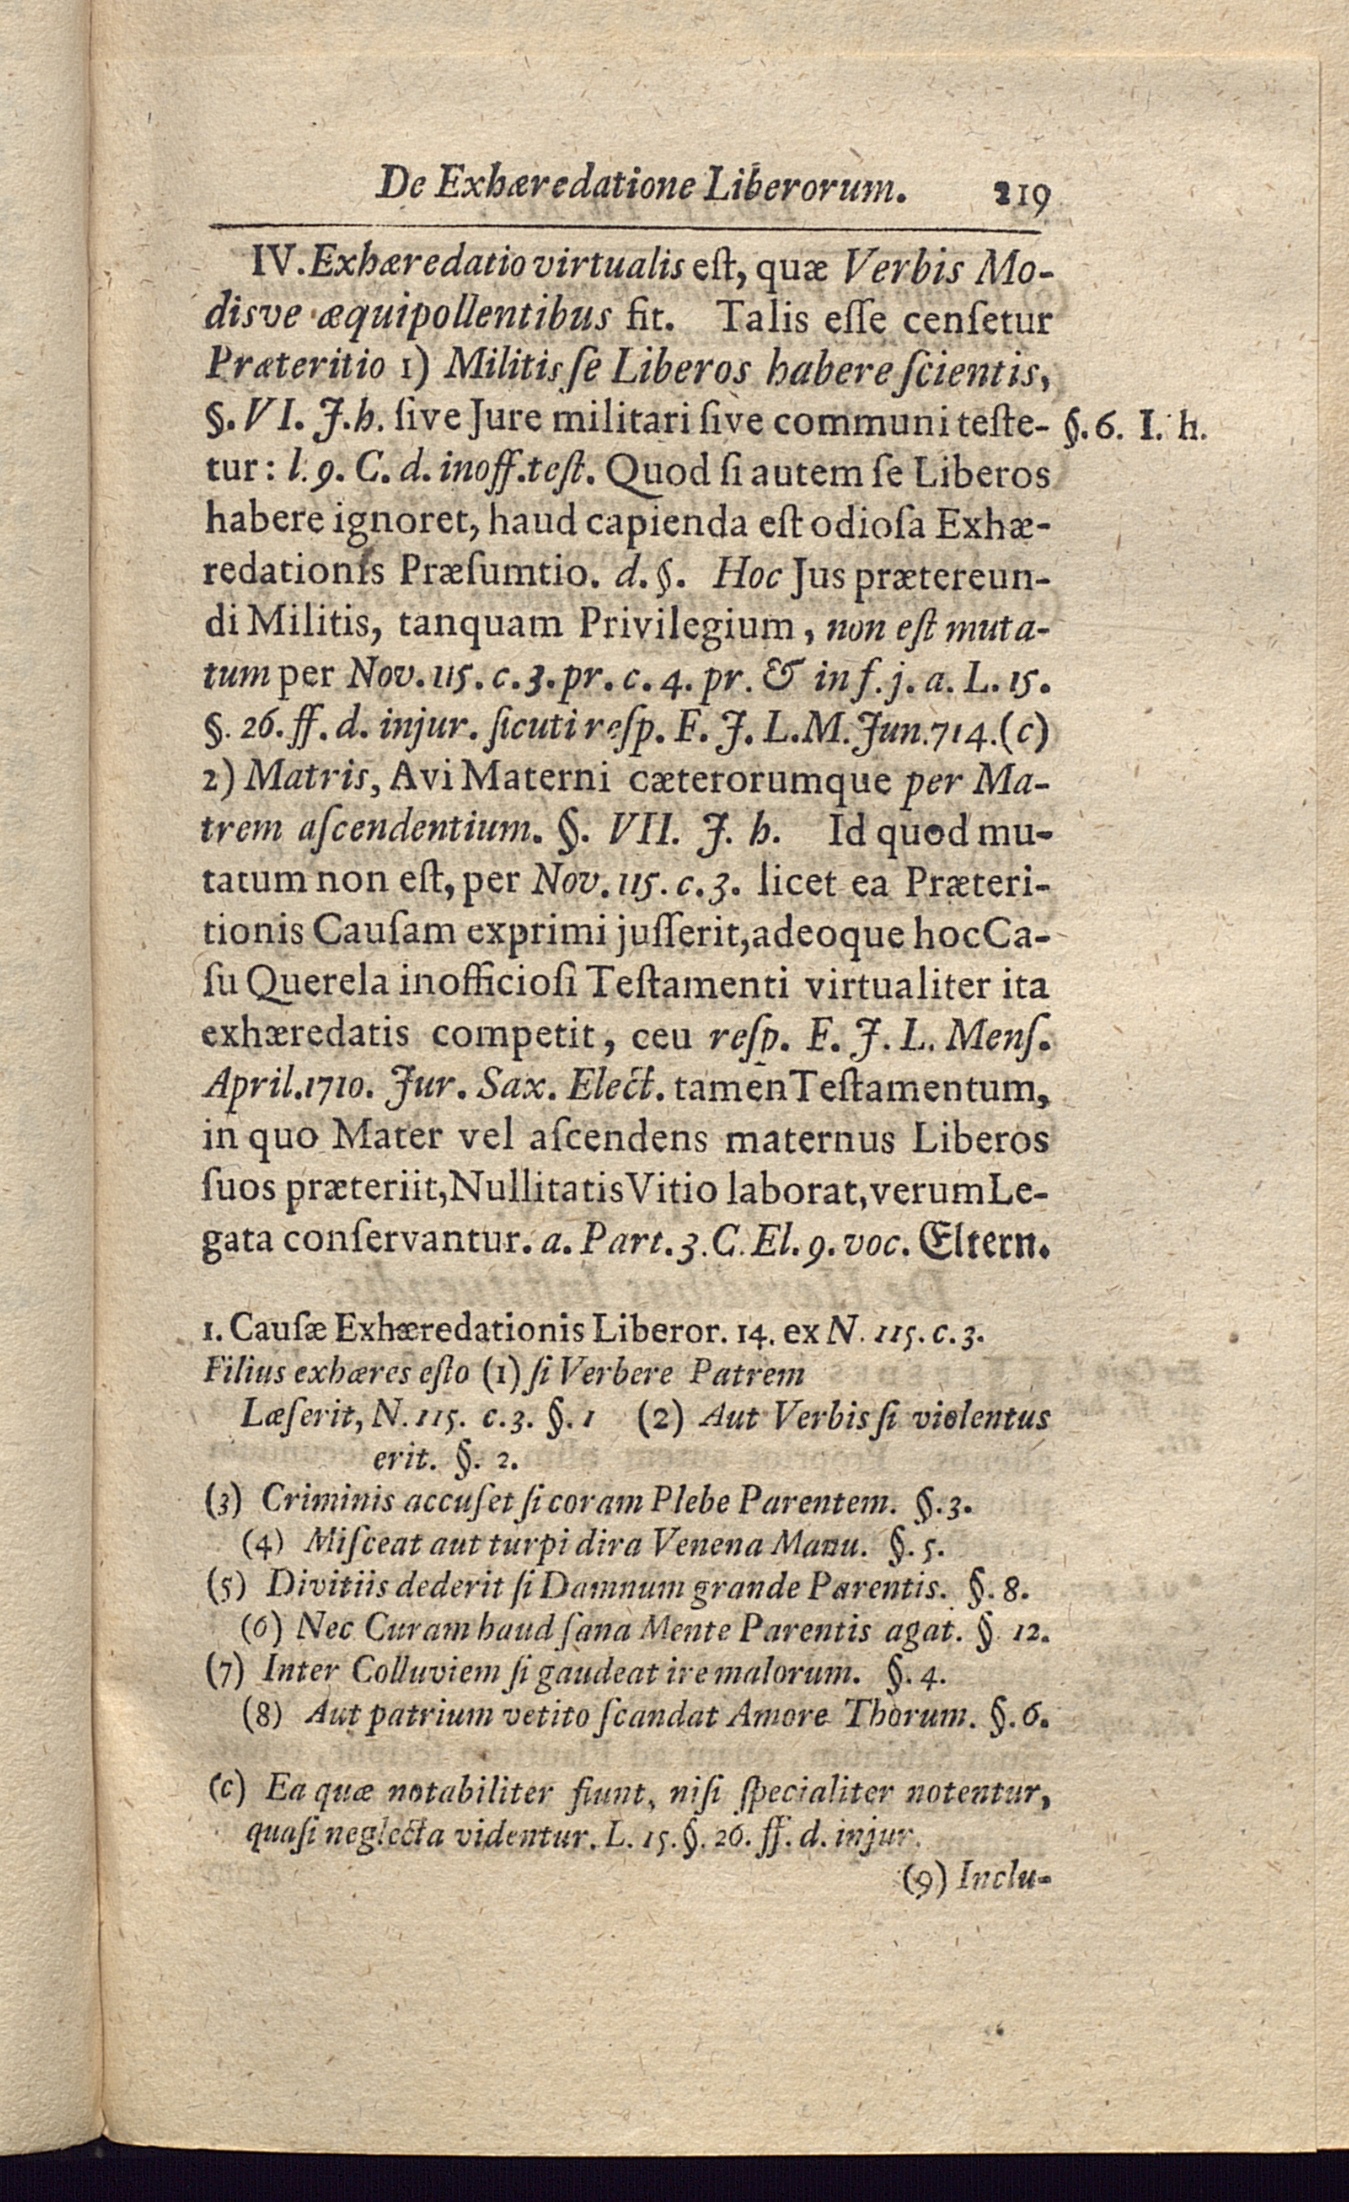 De Exhæredatione Liberorum. 219
IV. Exhæredatio virtualis eſt, quæ Verbis Mo-
disve æquipollentibus fit. Talis eſſe cenſetur
Præteritio 1) Militis ſe Liberos habere ſcientis,
§. VI. J. h. ſive Jure militari ſive communi teſte- §. 6. I. h.
tur: l. 9. C. d. inoff. teſt. Quod ſi autem ſe Liberos
habere ignoret, haud capienda eſt odioſa Exhæ-
redationis Præſumtio. d. §. Hoc Jus prætereun-
di Militis, tanquam Privilegium, non eſt muta-
tum per Nov. 115. c. 3. pr. c. 4. pr. & in f. j. a. L. 15.
§. 26. ff. d. injur. ſicuti reſp. F. J. L. M. Jun. 714. (c)
2) Matris, Avi Materni cæterorumque per Ma-
trem aſcendentium. §. VII. J. h. Id quod mu-
tatum non eſt, per Nov. 115. c. 3. licet ea Præteri-
tionis Cauſam exprimi juſſerit, adeoque hoc Ca-
ſu Querela inofficioſi Teſtamenti virtualiter ita
exhæredatis competit, ceu reſp. F. J. L. Menſ.
April. 1710. Jur. Sax. Elect. tamen Teſtamentum,
in quo Mater vel aſcendens maternus Liberos
ſuos præteriit, Nullitatis Vitio laborat, verum Le-
gata conſervantur. a. Part. 3. C. El. 9. voc. Eltern.
1. Cauſæ Exhæredationis Liberor. 14. ex N. 115. c. 3.
Filius exhæres eſto (1) ſi Verbere Patrem
Læſerit, N. 115. c. 3. §. 1 (2) Aut Verbis ſi violentus
erit. §. 2.
(3) Criminis accuſet ſi coram Plebe Parentem. §. 3.
(4) Miſceat aut turpi dira Venena Manu. §. 5.
(5) Divitiis dederit ſi Damnum grande Parentis. §. 8.
(6) Nec Curam haud ſana Mente Parentis agat. § 12.
(7) Inter Colluviem ſi gaudeat ire malorum. §. 4.
(8) Aut patrium vetito ſcandat Amore Thorum. §. 6.
(c) Ea quæ notabiliter fiunt, niſi ſpecialiter notentur,
quaſi neglecta videntur. L. 15. §. 26. ff. d. injur.
(9) Inclu-